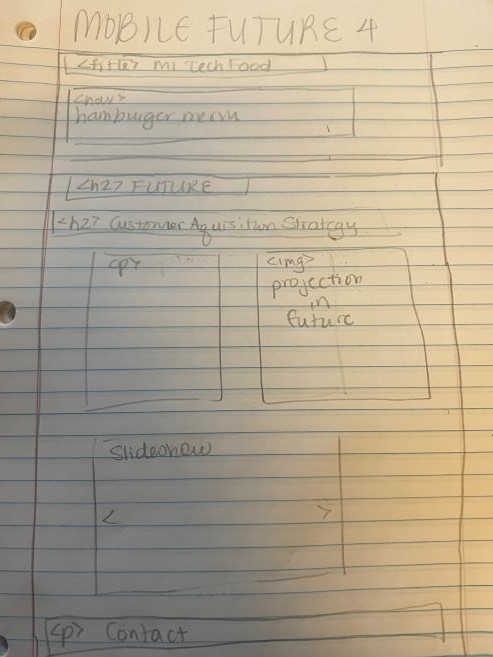 MOBILE FUTURE 4
<title> MI TechFood
<nav>
hamburger menu
<h2> FUTURE
<h2> Customer Aquisition Strategy
<p>
<img>
projection
in
future
Slideshow
< >
<p> Contact